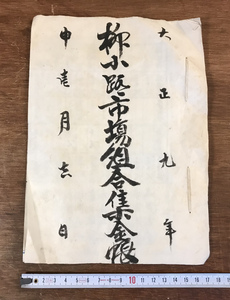 大正九年
柳小路市場組合集金帳
申壱月吉日